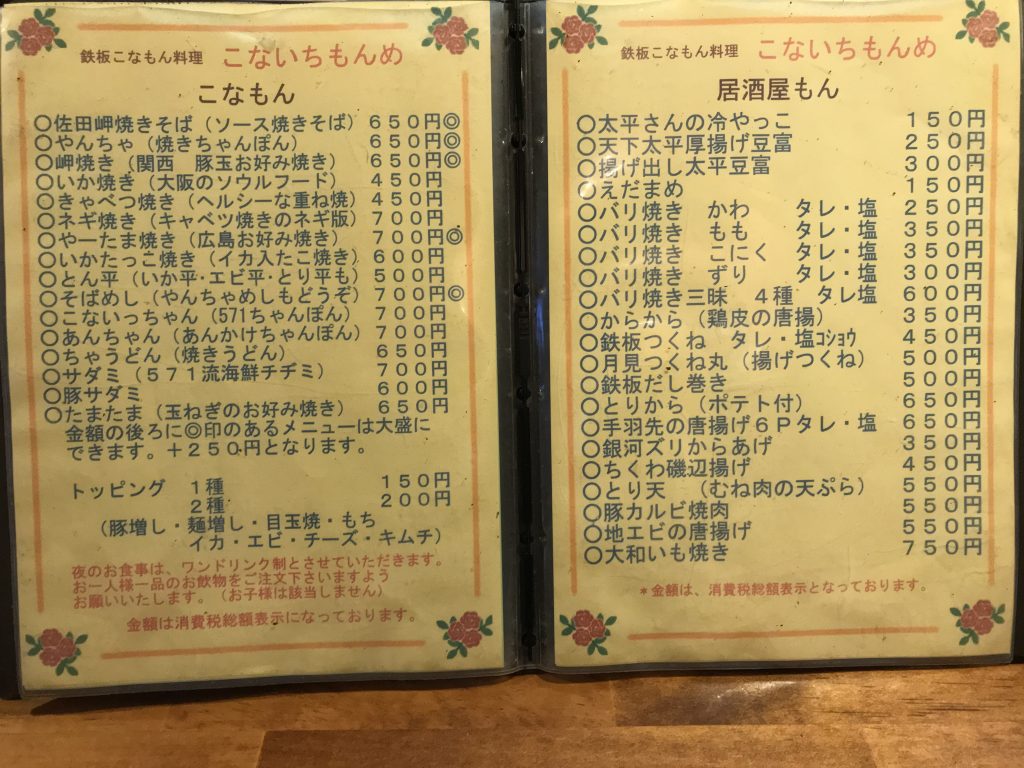 鉄板こなもん料理 こないちもんめ
こなもん
○佐田岬焼きそば（ソース焼きそば） 650円◎
○やんちゃ（焼きちゃんぽん） 650円◎
○岬焼き（関西 豚玉お好み焼き） 650円◎
○いか焼き（大阪のソウルフード） 450円
○きゃべつ焼き（ヘルシーな重ね焼） 450円
○ネギ焼き（キャベツ焼きのネギ版） 700円
○やーたま焼き（広島お好み焼き） 700円◎
○いかたっこ焼き（イカ入たこ焼き） 600円
○とん平（いか平・エビ平・とり平も） 500円
○そばめし（やんちゃめしもどうぞ） 700円◎
○こないっちゃん（571ちゃんぽん） 700円
○あんちゃん（あんかけちゃんぽん） 700円
○ちゃうどん（焼きうどん） 650円
○サダミ（571流海鮮チヂミ） 700円
○豚サダミ 600円
○たまたま（玉ねぎのお好み焼き） 650円
金額の後ろに◎印のあるメニューは大盛に
できます。＋250円となります。
トッピング 1種 150円
2種 200円
（豚増し・麺増し・目玉焼・もち
イカ・エビ・チーズ・キムチ）
夜のお食事は、ワンドリンク制とさせていただきます。
お一人様一品のお飲物をご注文下さいますよう
お願いいたします。（お子様は該当しません）
金額は消費税総額表示になっております。
鉄板こなもん料理 こないちもんめ
居酒屋もん
○太平さんの冷やっこ 150円
○天下太平厚揚げ豆富 250円
○揚げ出し太平豆富 300円
○えだまめ 150円
○バリ焼き かわ タレ・塩 250円
○バリ焼き もも タレ・塩 350円
○バリ焼き こにく タレ・塩 350円
○バリ焼き ずり タレ・塩 300円
○バリ焼き三昧 4種 タレ塩 600円
○からから（鶏皮の唐揚） 350円
○鉄板つくね タレ・塩コショウ 450円
○月見つくね丸（揚げつくね） 500円
○鉄板だし巻き 500円
○とりから（ポテト付） 650円
○手羽先の唐揚げ6Pタレ・塩 650円
○銀河ズリからあげ 350円
○ちくわ磯辺揚げ 450円
○とり天 （むね肉の天ぷら） 550円
○豚カルビ焼肉 550円
○地エビの唐揚げ 550円
○大和いも焼き 750円
＊金額は、消費税総額表示となっております。